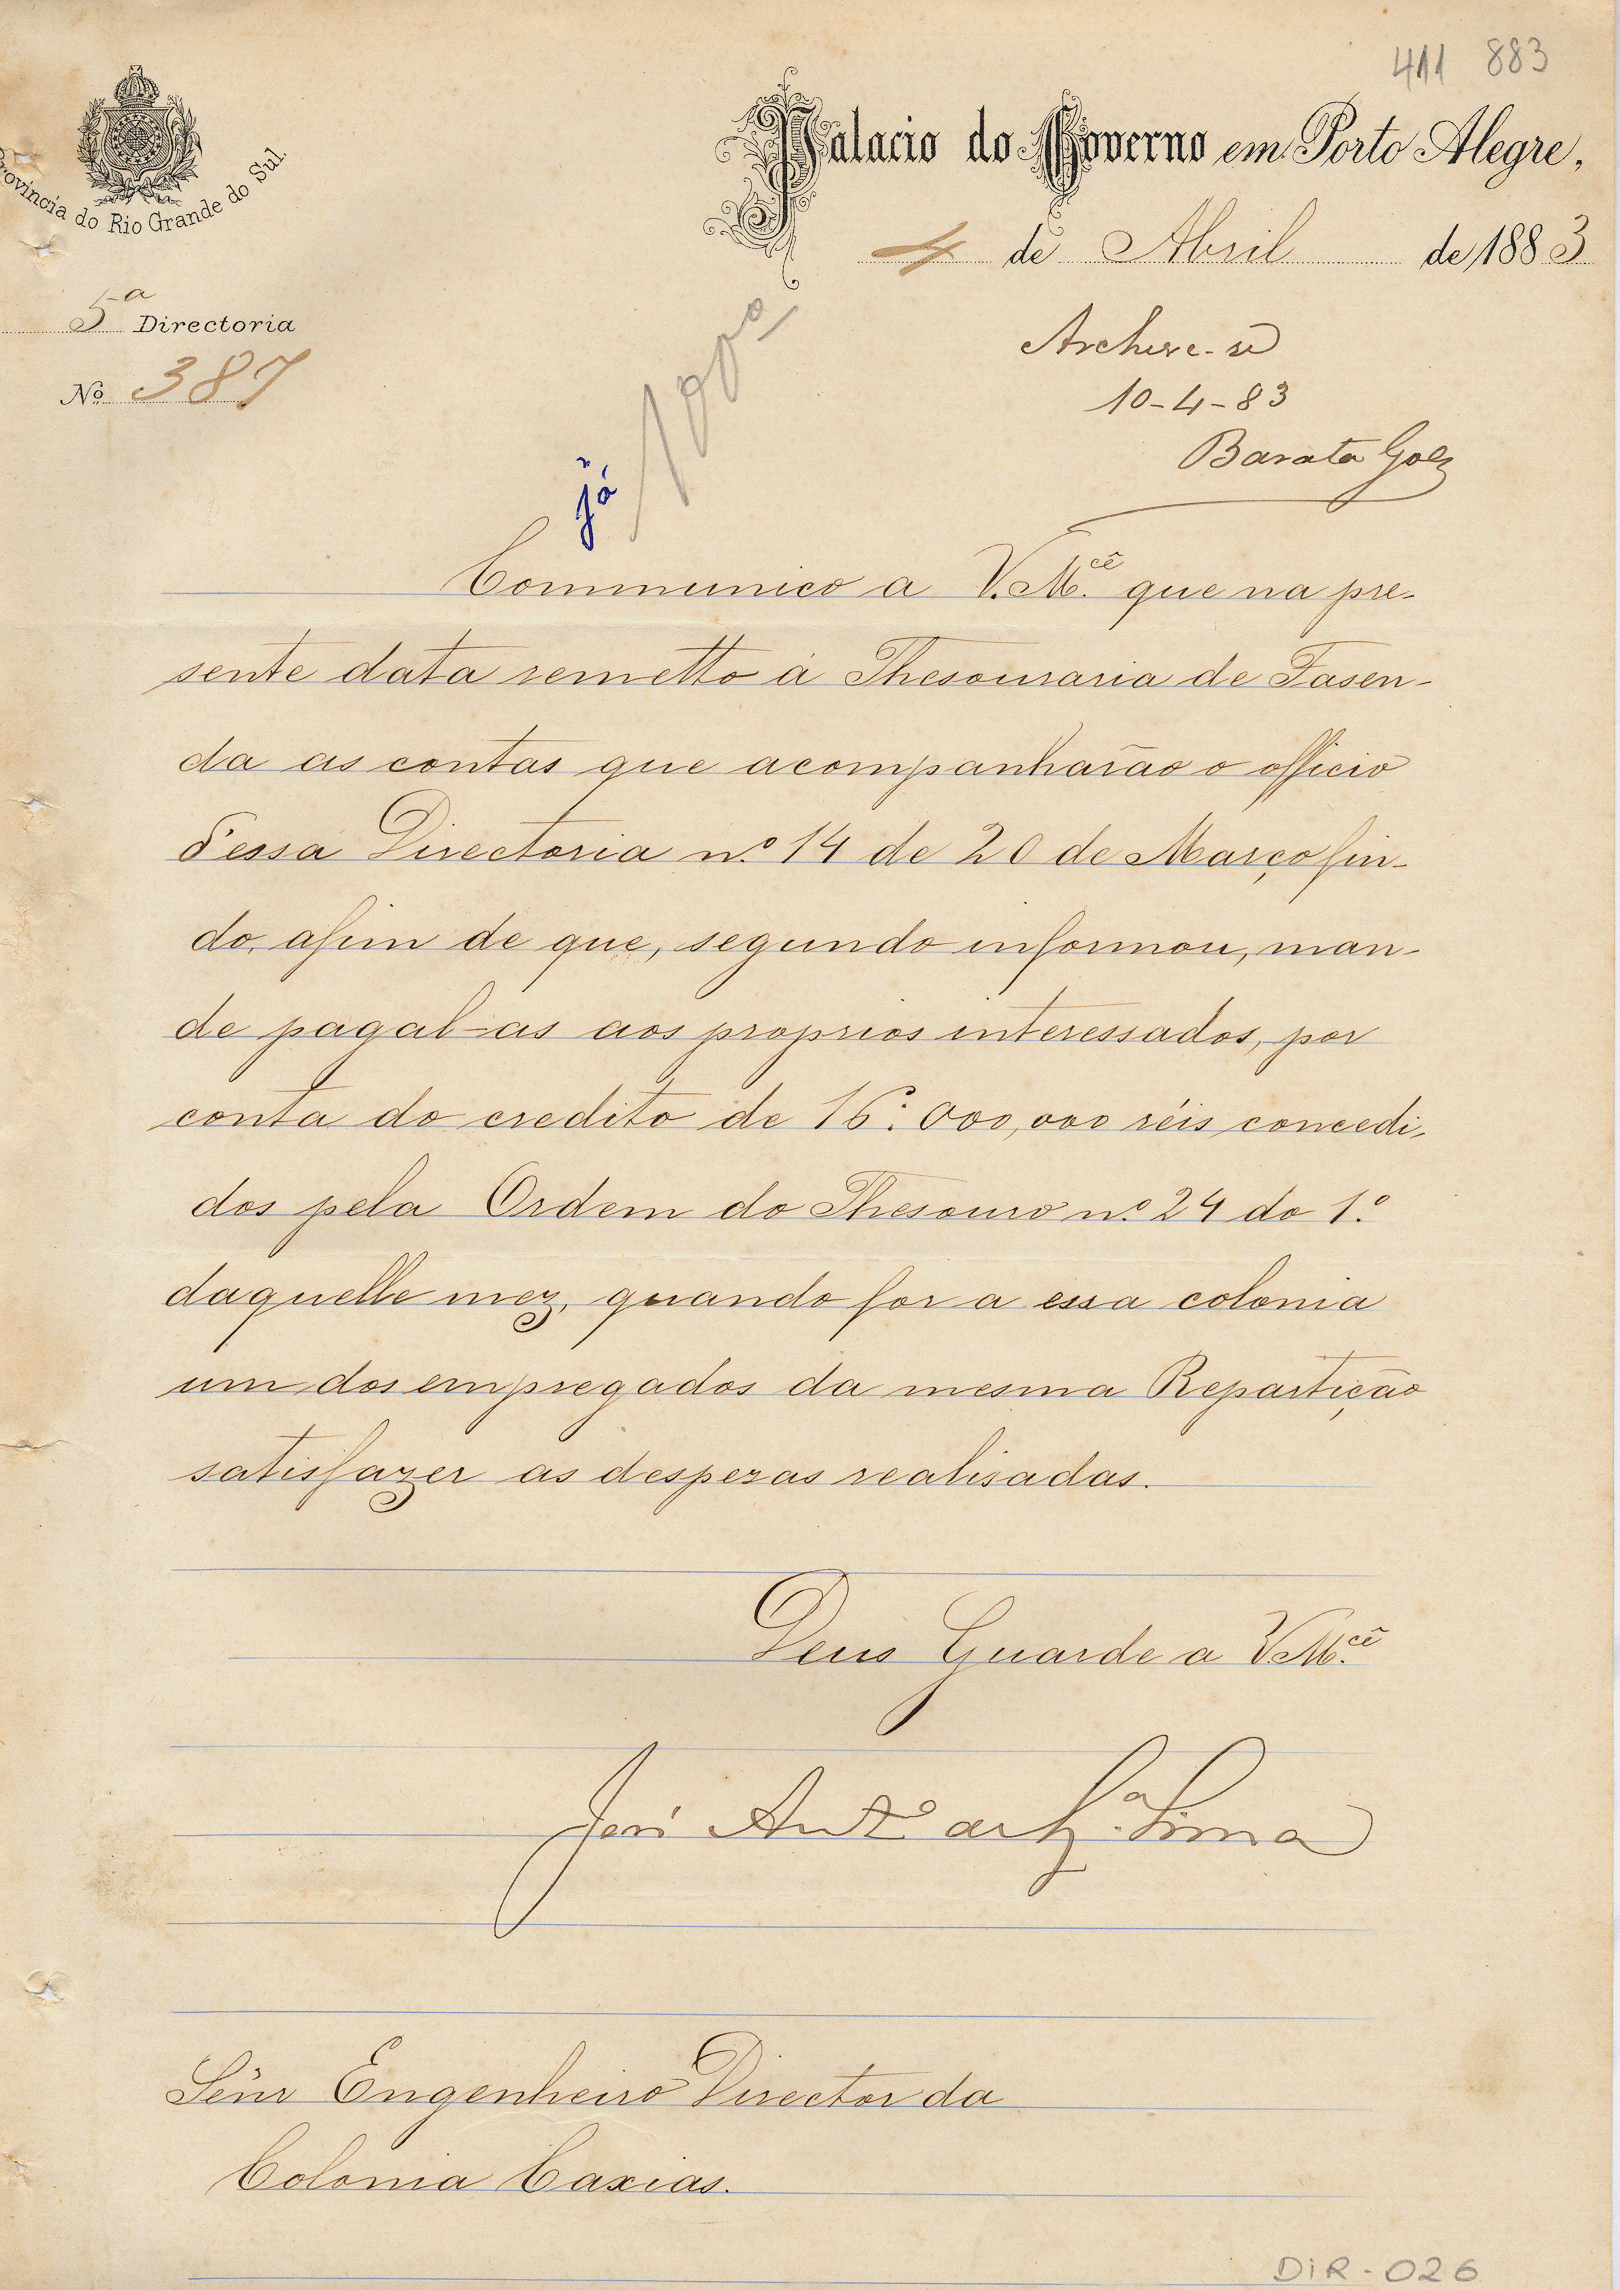 411 883
Provincia do Rio Grande do Sul.
Palacio do Governo em Porto Alegre,
4 de Abril de 1883
5ª Directoria
Nº 387
Archive-se
10-4-83
Barata Góes
já
100º
Communico a V.M.cê que na pre-
sente data remetto á Thesouraria de Fasen-
da as contas que acompanharão o officio
d'essa Directoria n.º 14 de 20 de Março fin-
do, afim de que, segundo informou, man-
de pagal-as aos proprios interessados, por
conta do credito de 16:000,000 réis concedi-
dos pela Ordem do Thesouro n.º 24 do 1.º
daquelle mez, quando for a essa colonia
um dos empregados da mesma Repartição
satisfazer as despezas realisadas.
Deus Guarde a V.M.cê
José Ant.º de Lima
Sen̄r Engenheiro Director da
Colonia Caxias.
DiR-026